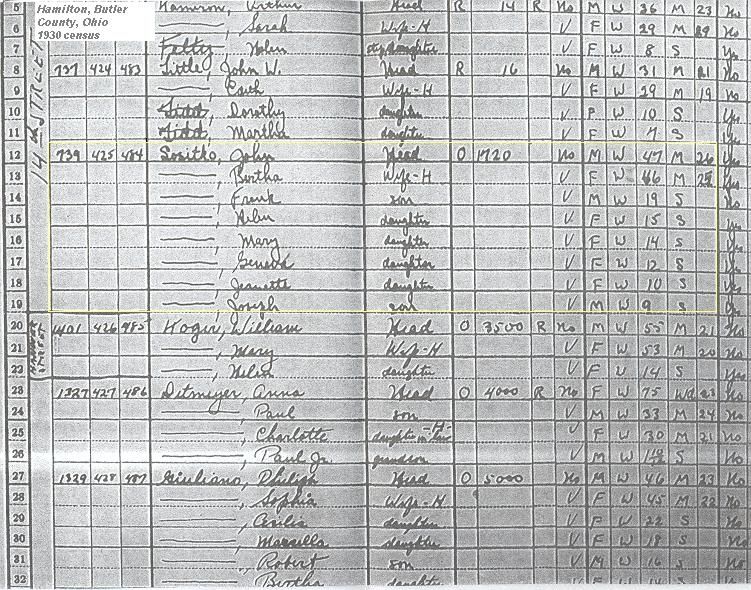 Hamilton, Butler
County, Ohio
1930 census
14th STREET
5 Arthur Head R 14 R No M W 36 M 23 No
6 ——, Sarah Wife-H V F W 29 M No
7 Helen stepdaughter V F W 8 S
8 737 424 483 Little, John W. Head R 16 No M W 31 M 21 No
9 ——, Wife-H V F W 29 M 19 No
10 Dorothy daughter V F W 10 S Yes
11 Martha daughter V F W 7 S Yes
12 739 425 484 Sositko, John Head O 1720 No M W 47 M 26
13 ——, Bertha Wife-H V F W 46 M
14 ——, Frank son V M W 19 S No
15 ——, Helen daughter V F W 15 S
16 ——, Mary daughter V F W 14 S
17 ——, Geneva daughter V F W 12 S
18 ——, Jeanette daughter V F W 10 S
19 ——, Joseph son V M W 9 S
20 1401 426 485 William Head O 3500 R No M W 55 M 21 No
21 ——, Mary Wife-H V F W 53 M 20 No
22 ——, Helen daughter V F W 14 S Yes
23 1327 427 486 Ditmeyer, Anna Head O 4000 R No F W 75 Wd No
24 ——, Paul son V M W 33 M 24 No
25 ——, Charlotte daughter-in-law -H- V F W 30 M 21 No
26 ——, Paul Jr. grandson V M W S No
27 1329 428 487 Giuliano, Philip Head O 5000 No M W 46 M 23 No
28 ——, Sophia Wife-H V F W 45 M 22 No
29 ——, Cecilia daughter V F W 22 S No
30 ——, Marcella daughter V F W 18 S No
31 ——, Robert son V M W 16 S No
32 ——, Bertha daughter V F W S